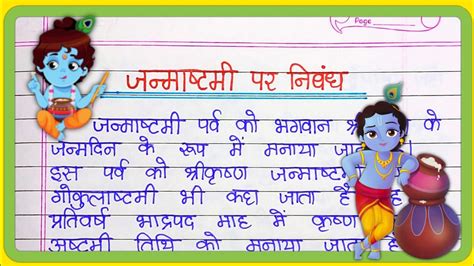 Page
जन्माष्टमी पर निबंध
जन्माष्टमी पर्व को भगवान के
जन्मदिन के रूप में मनाया
इस पर्व को श्रीकृष्ण
गोकुलाष्टमी भी कहा जाता है
प्रतिवर्ष भाद्रपद माह में कृष्ण
अष्टमी तिथि को मनाया जाता है